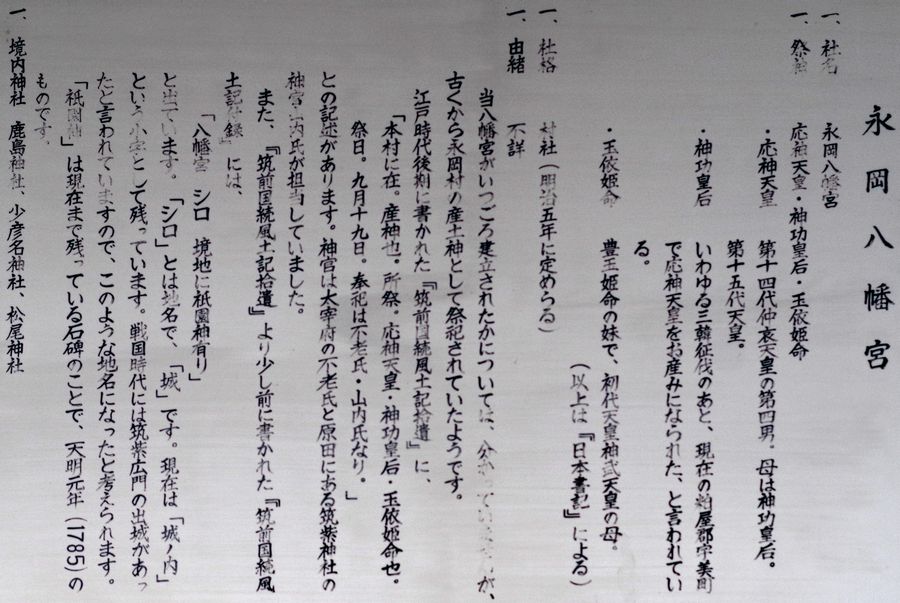 永岡八幡宮
一、社名　永岡八幡宮
一、祭神　応神天皇・神功皇后・玉依姫命
・応神天皇　第十四代仲哀天皇の第四男。母は神功皇后。
第十五代天皇。
・神功皇后　いわゆる三韓征伐のあと、現在の粕屋郡宇美町
で応神天皇をお産みになられた、と言われてい
る。
・玉依姫命　豊玉姫命の妹で、初代天皇神武天皇の母。
（以上は『日本書記』による）
一、社格　村社（明治五年に定めらる）
一、由緒　不詳
当八幡宮がいつごろ建立されたかについては、分かっていませんが、
古くから永岡村の産土神として祭祀されていたようです。
江戸時代後期に書かれた『筑前国続風土記拾遺』に、
「本村に在。産神也。所祭。応神天皇・神功皇后・玉依姫命也。
祭日。九月十九日　奉祀は不老氏・山内氏なり。」
との記述があります。神官は太宰府の不老氏と原田にある筑紫神社の
神官山内氏が担当していました。
また、『筑前国続風土記拾遺』より少し前に書かれた『筑前国続風
土記付録』には、
「八幡宮　シロ　境地に祇園神有り」
と出ています。「シロ」とは地名で、「城」です。現在は「城ノ内」
という小字として残っています。戦国時代には筑紫広門の出城があっ
たと言われていますので、このような地名になったと考えられます。
「祇園神」は現在まで残っている石碑のことで、天明元年（1785）の
ものです。
一、境内神社　鹿島神社、少彦名神社、松尾神社